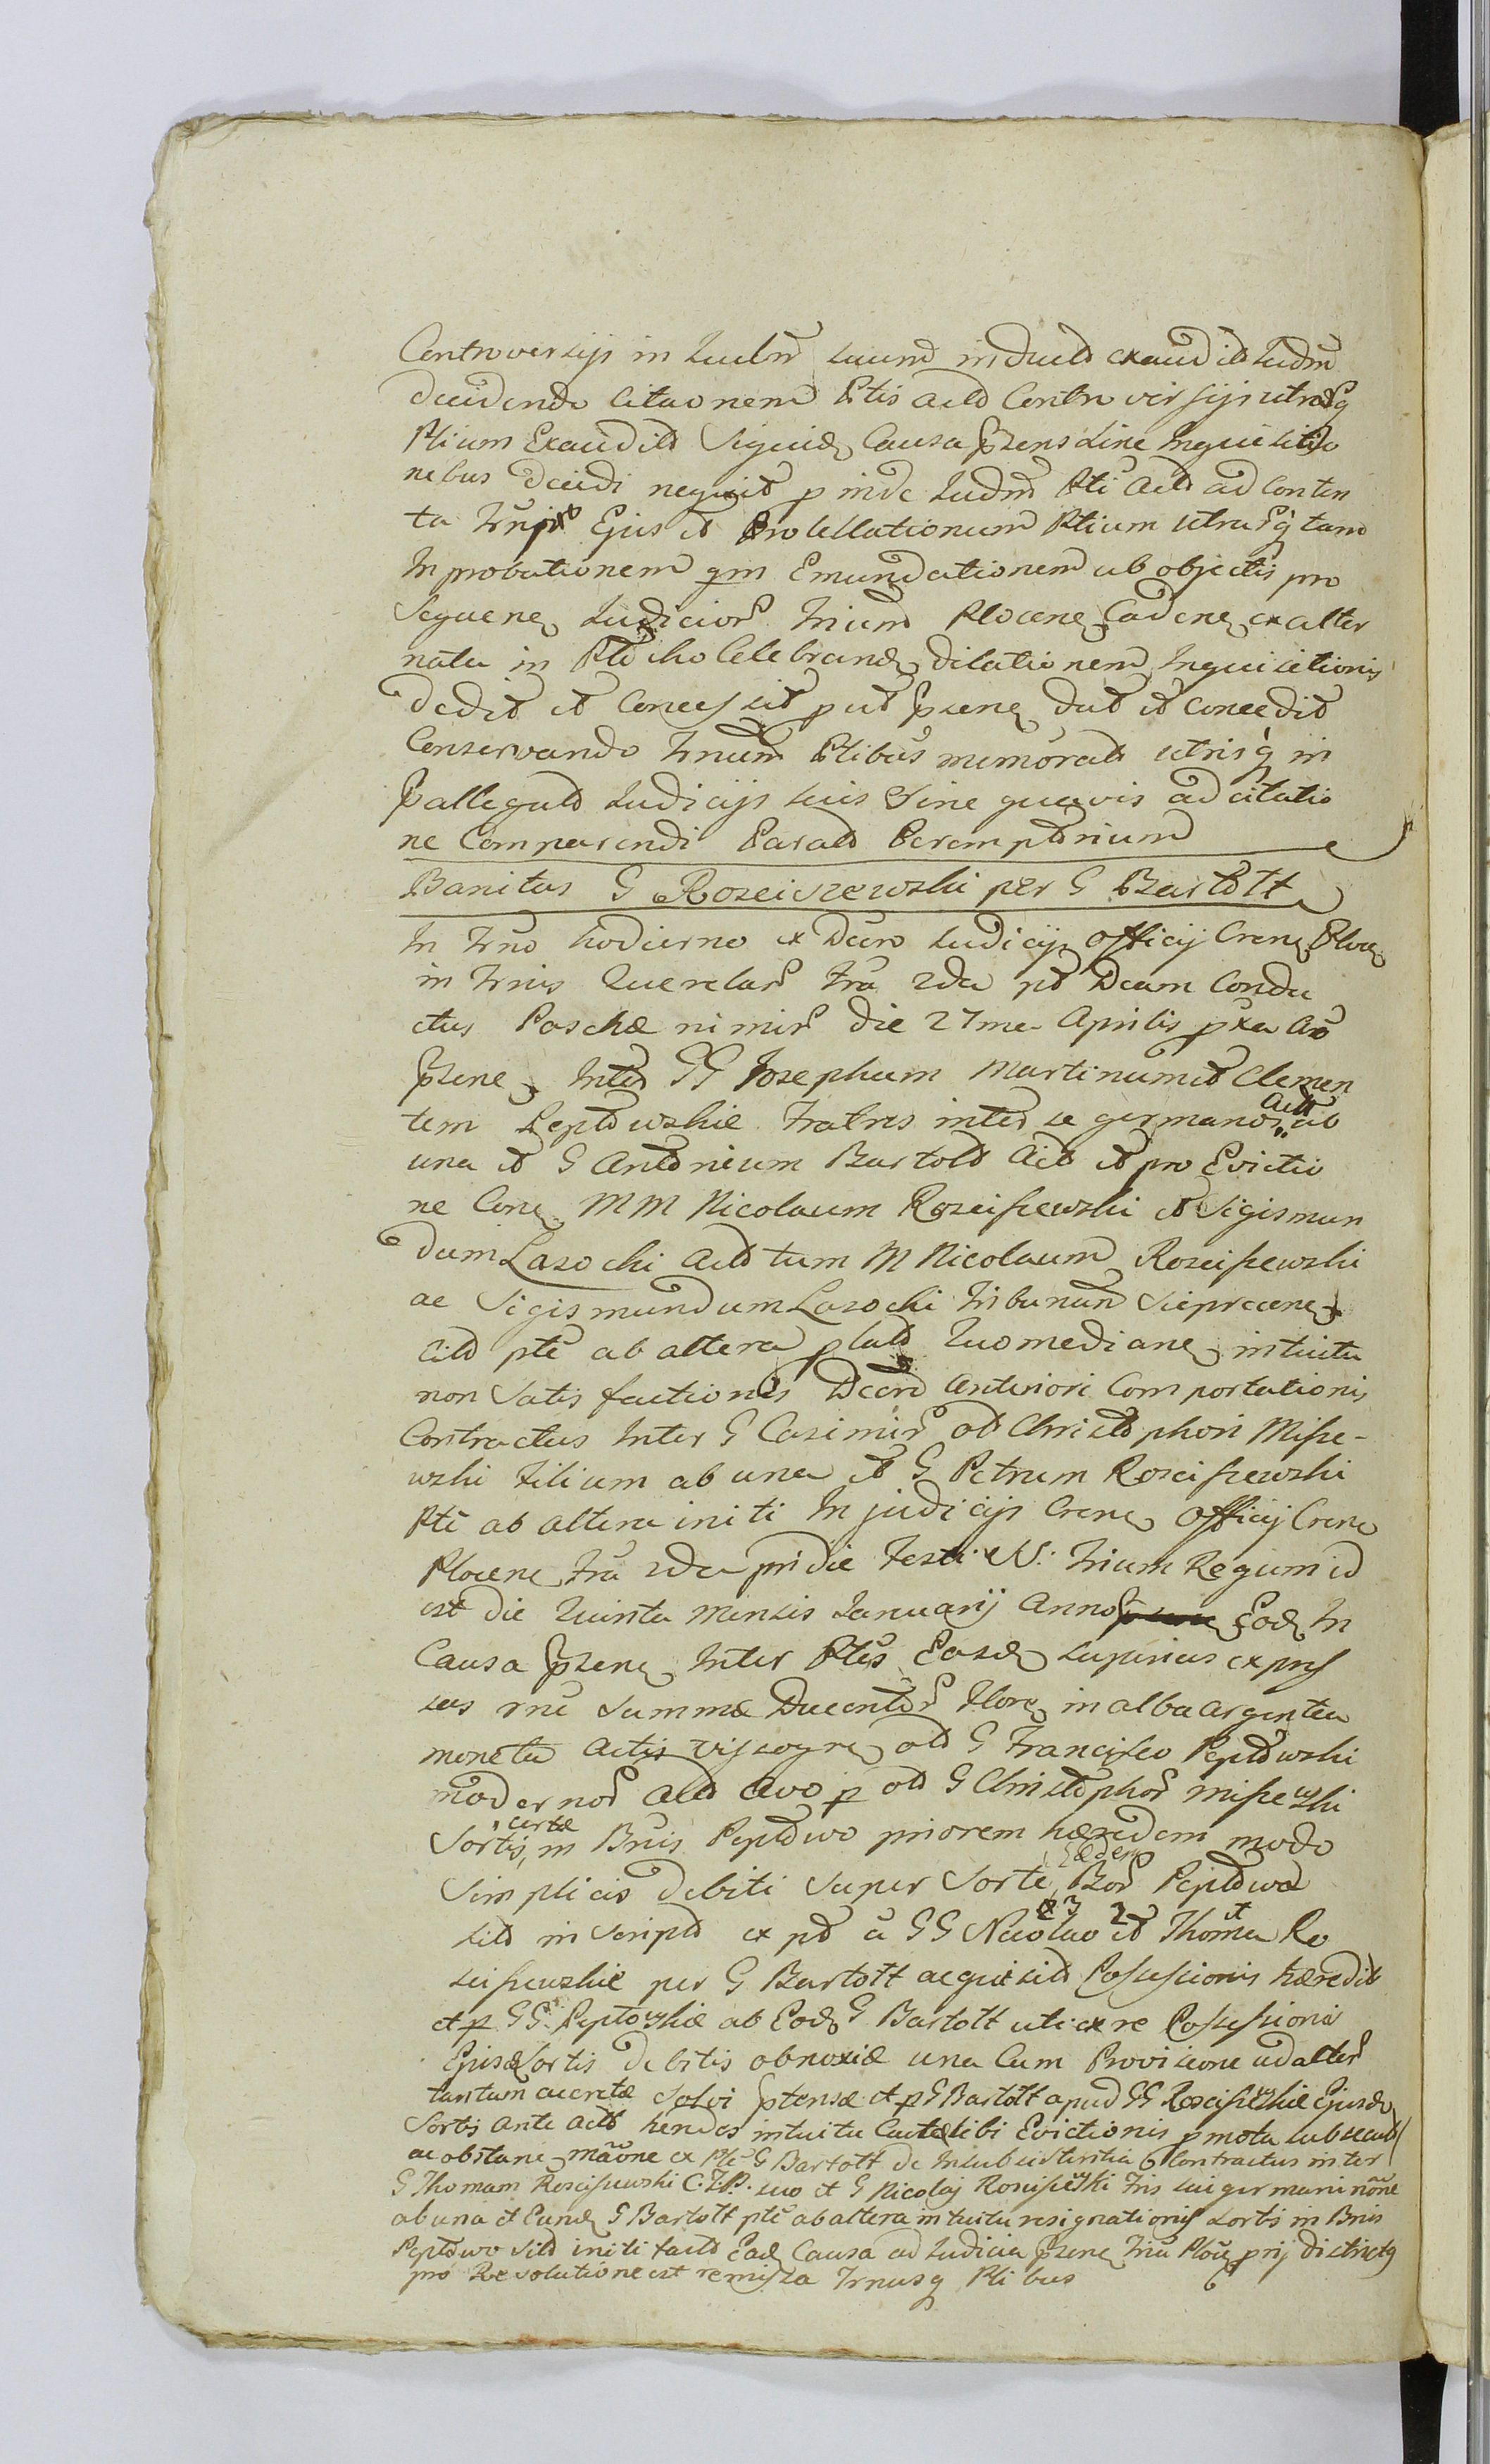 Controversijs in Iudm suum induct exaudit Iudm
decidendo Citaonem Ptis Act Controversijs utrarq
Ptium Exaudit Siquid Causa pzens sine Inquisitio
nibus decidi nequit p inde Iudm Pti Act ad Conten
ta Ejus et Protestationum Ptium utrarq tam
In probationem qm Emundationem ab objectis pro
Sequene Iudicior Trium Plocene Cadene ex alter
nata in Celebrand dilationem Inquisitionis
dedit et Concessit put pzene dat et concedit
Conservando Trnum Ptibus memorat utrisq in
pallegat Iudicijs suis Sine quavis adcitatio
ne Comparendi Parat Peremptorium
Banitus G Rosciszewski per G Bartott
In Trno hodierno ex Decro Iudicij Officij Crene Ploce
in Trnis Querelar fra 2da pt Dcam Condu
ctus Paschæ nimir die 27ma Aprilis pxa Ao
pzene Inter GG Josephum Martinum et Clemen
tem Peptowskie Fratres inter se germanos Act ab
una et G Antonium Bartold Act et pro Evictio
ne Cone MM Nicolaum Roscissewski et Sigismun
dum Lasocki Act tum M Nicolaum Roscissewski
ac Sigismundum Lasocki Tribunum Sieprcene
Cit pte ab altera plat Quomediane intuitu
non Satis factionis Decro Anteriori Comportationis
Contractus Inter G Casimir ol Christophori Misse-
wski Filium ab una et G Petrum Roscissewski
Pte ab altera initi In judicijs Crene Officij Crene
Plocene fra 2da pridie Festi N: Trium Regum id
est die Quinta Mensis Ianuarij Anno Eod In
Causa pzene Inter Ptes Easd superius expres
sas rne Summæ Ducentor Flore in alba argentea
moneta Actis Vissogre olt G Francisco Peptowski
modernor Act Avo p olt G Christophor Missewski
Sortis certæ in Bnis Peptowo priorem hæredem modo
Simplicis debiti super Sorte Eadem Bor Peptowo
sit inscript ex pt a GG Nicolao et Thoma Ro
scissewskie per G Bartott acquisit Possessionis hæredit
et p GG Peptowskie ab Eod G Bartott uti ex re Possessionis
Ejusd Sortis debitis obnoxiæ una Cum Provisione ad alter
tantum accretæ Solvi ptensæ et p G Bartott apud GG Roscissewskie Ejusd
Sortis ante act heredes intuitu Cautæ sibi Evictionis pmota subsecut
ac obstane maone ex Pte G Bartott de Insubsistentia Contractus inter
G Thomam Roscissewski C.Z.P. suo et G Nicolaj Roscissewski Fris sui germani none
ab una et Eund G Bartott pte ab altera intuitu resignationis Sortis in Bnis
Peptowo Sit initi facto Ead Causa ad Iudicia pzene Triu Ploce prij districtq
pro Resolutione est remissa Trnusq Ptibus